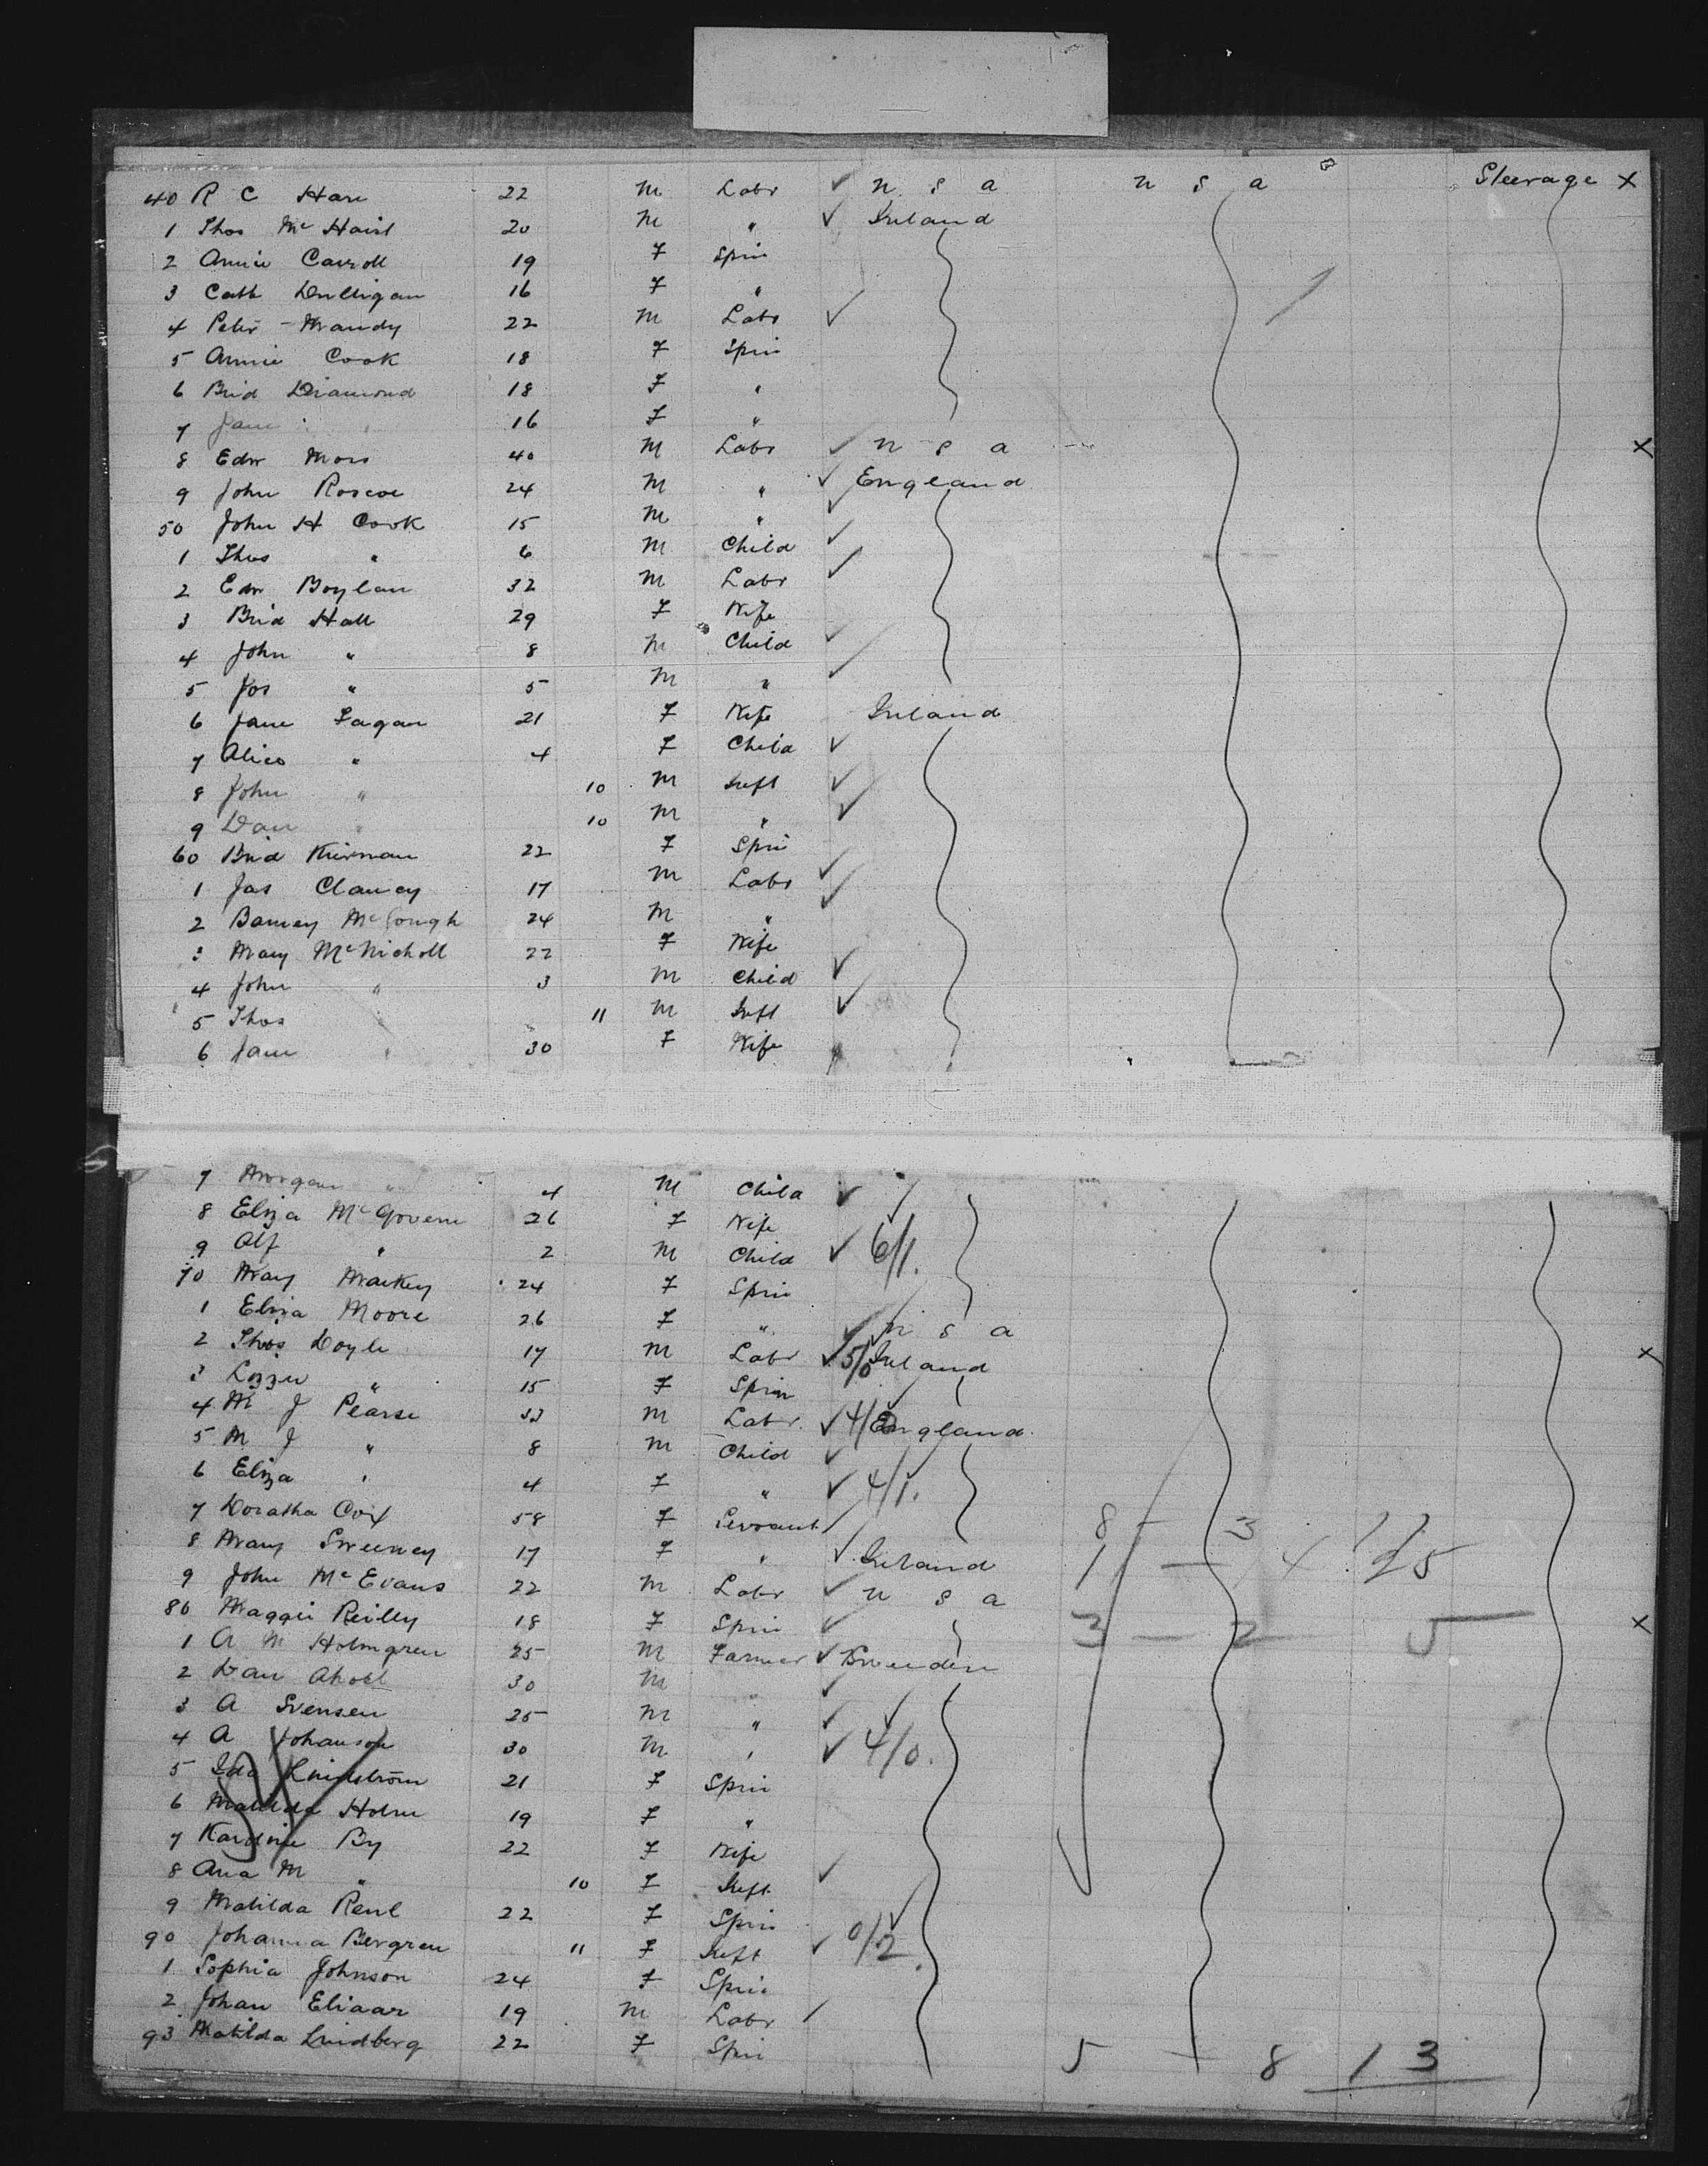 40 R C Hare 22 M Labr ✓ U S A U S A Steerage X
1 Thos Mc 20 M " ✓ Ireland
2 Annie Carroll 19 F Spin
3 Cath 16 F "
4 Peter 22 M Labr ✓
5 Annie Cook 18 F Spin
6 Brid Diamond 18 F "
7 Jane " 16 F "
8 Edw 40 M Labr ✓ U S A X
9 John Roscoe 24 M " ✓ England
50 John H Cook 15 M " ✓
1 Thos " 6 M Child ✓
2 Edw Boylan 32 M Labr ✓
3 Brid Hall 29 F Wife
4 John " 8 M Child ✓
5 Jos " 5 M " ✓
6 Jane Fagan 21 F Wife Ireland
7 Alice " 4 F Child ✓
8 John " 10 M Inft ✓
9 Dan " 10 M " ✓
60 Brid Kiernan 22 F Spin
1 Jas Clancy 17 M Labr ✓
2 Barney McGough 24 M " ✓
3 Mary McNicholl 22 F Wife
4 John " 3 M Child ✓
5 Thos " 11 M Inft ✓
6 Jane " 30 F Wife
7 Morgan " 4 M Child ✓
8 Eliza McGovern 26 F Wife
9 Alf " 2 M Child ✓ 6/1.
70 Mary Markey 24 F Spin
1 Eliza Moore 26 F " ✓ U S A
2 Thos Doyle 17 M Labr ✓ 5/0 Ireland X
3 Lizzie " 15 F Spin
4 J Pearse 33 M Labr ✓ 4/ England
5 M J " 8 M Child ✓
6 Eliza " 4 F " ✓ 4/1.
7 Doratha Cox 58 F Servant 8 - 3
8 Mary Sweeney 17 F " ✓ Ireland 1 - 4 25
9 John McEvans 22 M Labr ✓ U S A
80 Maggie Reilly 18 F Spin ✓ 3 - 2 5 X
1 A M Holmgren 25 M Farmer ✓ Sweeden
2 Dan 30 M " ✓
3 A Svensen 25 M " ✓
4 A Johanson 30 M " ✓ 4/0.
5 Ida Lindström 21 F Spin
6 Matilda Holm 19 F "
7 By 22 F Wife
8 Ana M " 10 F Inft ✓
9 Matilda 22 F Spin
90 Johanna Bergren 11 F Inft ✓ 0/2.
1 Sophia Johnson 24 F Spin
2 Johan Eliaar 19 M Labr /
93 Matilda Lindberg 22 F Spin 5 - 8 13